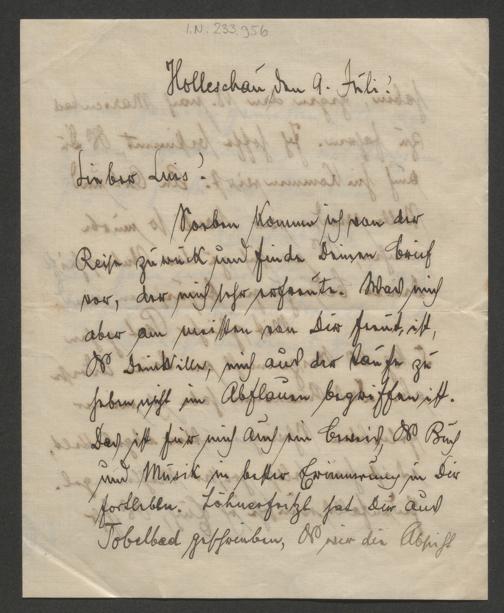 I.N. 233.956
Holleschau, den 9. Juli!
Lieber Luis!
Soeben komme ich von der
Reise zurück und finde Deinen Brief
vor, der mich sehr erfreute. Was mich
aber am meisten von Dir freut, ist,
Dein Wille, mich aus der Taufe zu
heben nicht im Abflauen begriffen ist.
Das ist für mich auch ein Beweis, Buch
und Musik in bester Erinnerung in Dir
fortleben. Löhnerfritzl hat Dir aus
Tobelbad geschrieben, wir die Absicht